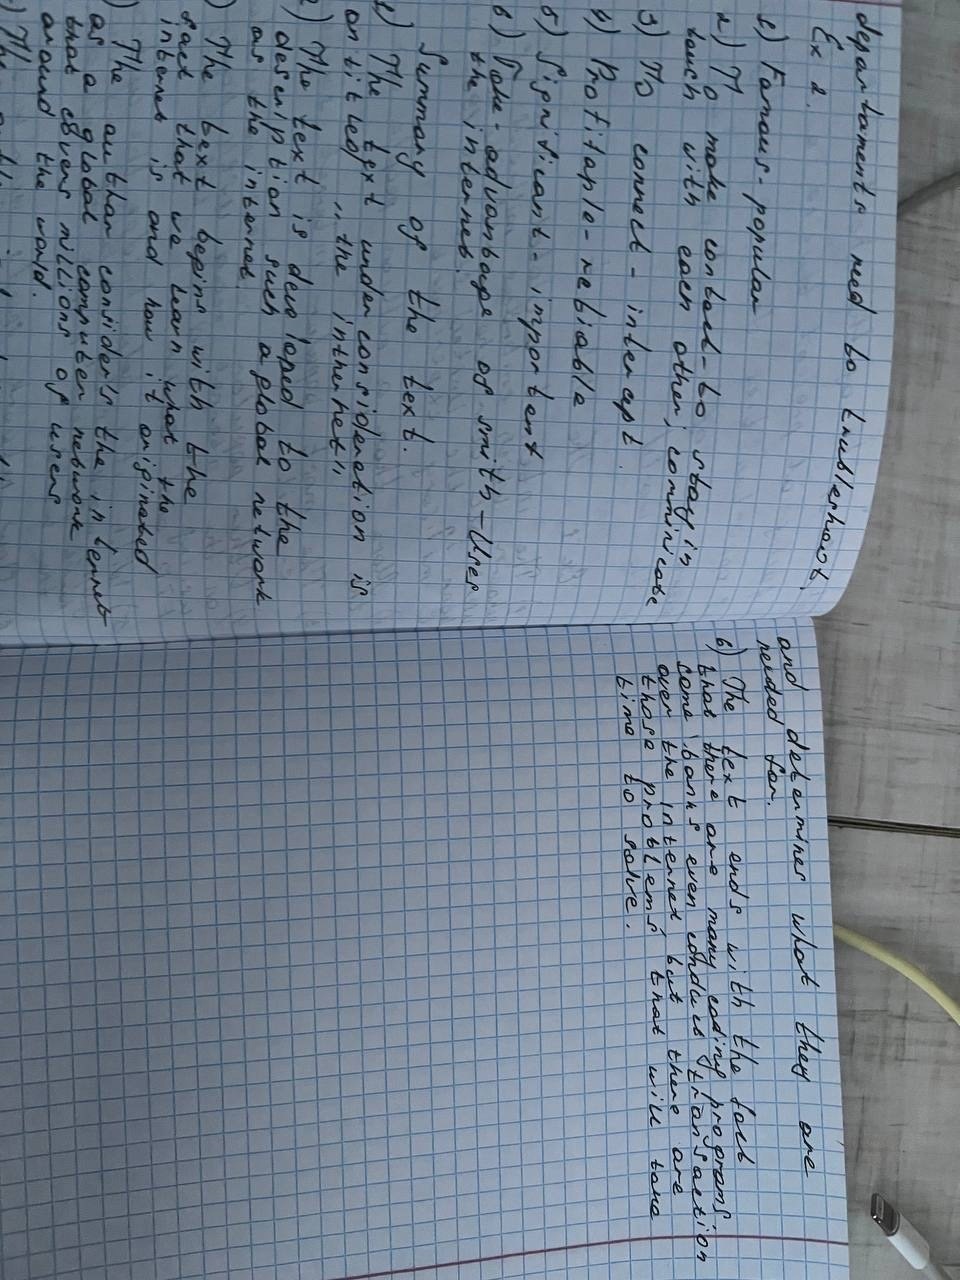 departaments need to trublerhoot,
Ex 2.
1) Famous-popular
2) To make contact-to stay in
touch with each other, comminicate
3) To connect - intercept.
4) Profitaple-rebiable
5) Significant-importent
6) Take-advantage of smith-Uses
the internet.
Summary of the text.
1) The text under consideration is
antitled „the inthernet"
2) The text is developed to the
description such a global network
as the internet.
) The text begins with the
fact that we learn what the
internet is and how it originated
) The author consider's the internet
as a global computer network
that covers millions of users
around the world.
) The
and determines what they are
needed for.
6) The text ends with the fact
that there are many coding programs
some banks even conducts transaction
over the internet but there are
those problems that will take
time to solve.